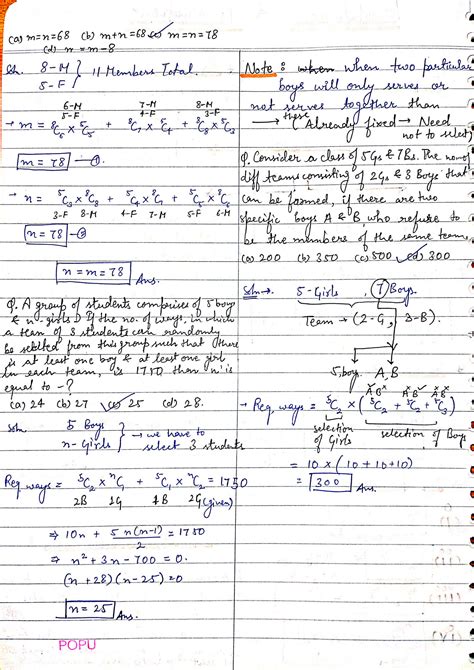 (a) m=n=68 (b) m+n=68 (c) m=n=78
(d) n = m-8
Sln. 8-M
5-F } 11 Members Total.
6-M 7-M 8-M
5-F 4-F 3-F
→ m = ⁸C₆ × ⁵C₅ + ⁸C₇ × ⁵C₄ + ⁸C₈ × ⁵C₃
m = 78 —①
→ n = ⁵C₃ × ⁸C₈ + ⁵C₄ × ⁸C₇ + ⁵C₅ × ⁸C₆
3-F 8-M 4-F 7-M 5-F 6-M
n = 78 —②
n = m = 78 Ans.
Q. A group of students comprises of 5 boys
& n-girls. If the no. of ways, in which
a team of 3 students can randomly
be selected from this group such that there
is at least one boy & at least one girl
in each team, is 1750 then 'n' is
equal to - ?
(a) 24 (b) 27 (c) 25 (d) 28.
Sln. 5 Boys
n-Girls } → we have to
select 3 students
Req ways = ⁵C₂ × ⁿC₁ + ⁵C₁ × ⁿC₂ = 1750
2B 1G 1B 2G (given)
⇒ 10n + 5n(n-1)/2 = 1750
⇒ n² + 3n - 700 = 0.
(n+28)(n-25) = 0
n = 25 Ans.
POPU
Note: when two particular
boys will only serves or
not serves together than
these (Already fixed → Need
not to select)
Q. Consider a class of 5Gs & 7Bs. The no. of
diff teams consisting of 2Gs & 3 Boys that
can be formed, if there are two
specific boys A & B, who refuse to
be the members of the same team.
(a) 200 (b) 350 (c) 500 (d) 300
Soln → 5-Girls, 7 Boys.
Team → (2-G, 3-B)
5 boys A, B
A✓ B× A× B✓ A× B×
→ Req. ways = ⁵C₂ × (⁵C₂ + ⁵C₂ + ⁵C₃)
selection selection of Boys
of Girls
= 10 × (10+10+10)
= 300 Ans.